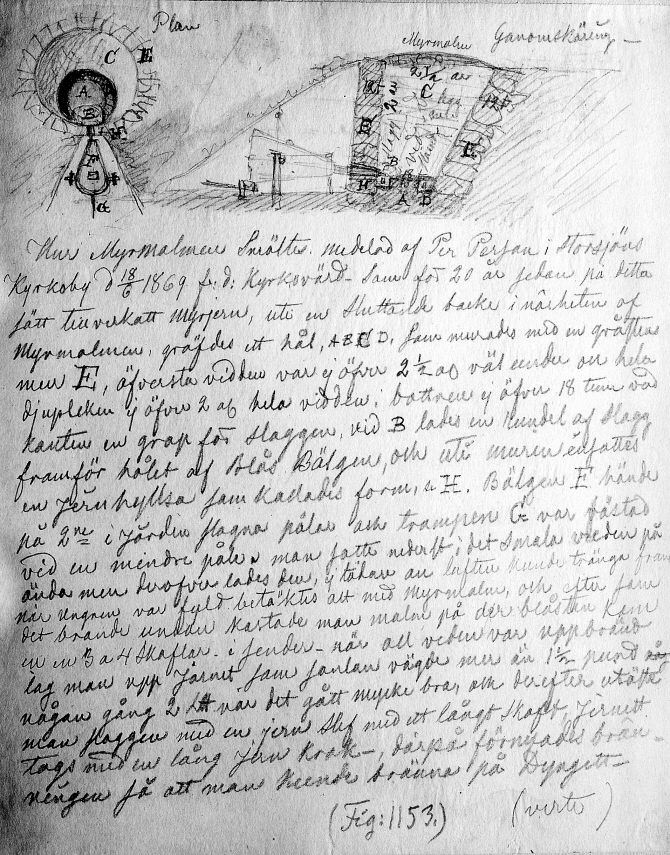 Plan
Myrmalm Genomskäring
A B C E F G H
Huru Myrmalmen Smältes. meddelad af Per Persson i Storsjöns
Kyrkoby d 18/6 1869 f: d: Kyrkovärd – Som för 20 år sedan på detta
sätt tillverkatt Myrjern, uti en sluttande backe i närheten af
Myrmalmen, gräfdes ett hål, ABCD, som murades med en gråstens
mur E, öfversta vidden var ej öfver 2 1/2 aln väl under en hela
djupleken ej öfver 2 aln hela vidden, i bottnen ej öfver 18 tum vid
kanten en grop för slaggen, vid B lades en av Slagg
framför hålet af Blås Bälgen, och uti muren insattes
en Jernhyllsa som kallades form, H. Bälgen F hände
på 2ne i Jorden slagna pålar och trampen G var fästad
vid en mindre påle, man satte nederst i det Smala veden på
ända men derofver lades den, ej tätare än luften kunde tränga fram
när ungnen var fyld betäktes alt med Myrmalm, och efter som
det brande undan kastade man malm på der blåstan kom
en 3 a 4 skoflar – i sender – när all veden var uppbränd
tog man upp Järnet som sällan vägde mer än 1 1/2 pund
någon gång 2 var det gått mycke bra, och derefter
man slaggen med en jern Slef med ett långt Skaft, Jernett
togs med en lång Jern Krok –, därpå förnyades brän–
ningen så att man kunde bränna på Dyngett–
(Fig: 1153.) (verte)